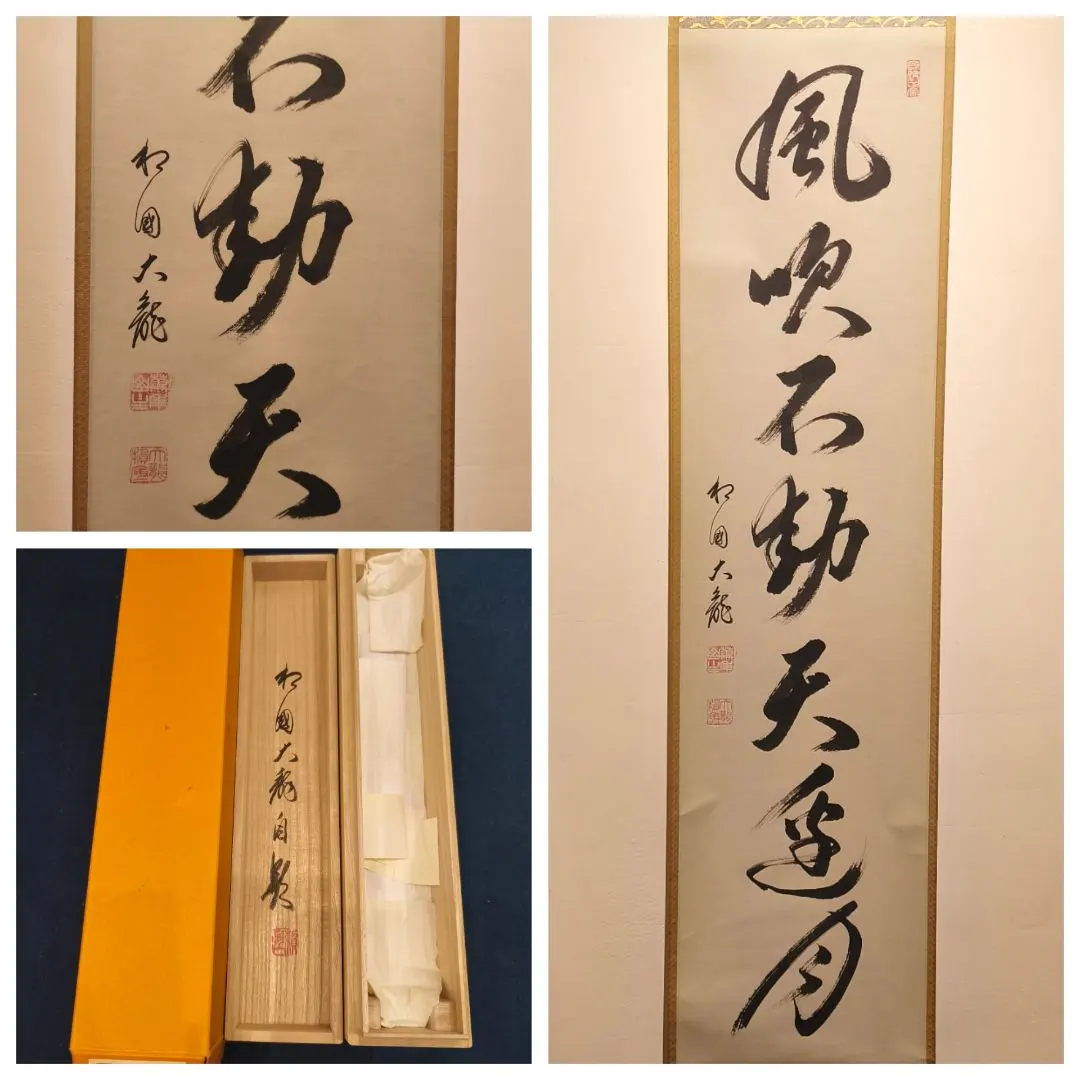 不動天
相國大龍
風吹不動天邊月
相國大龍
相國大龍自題